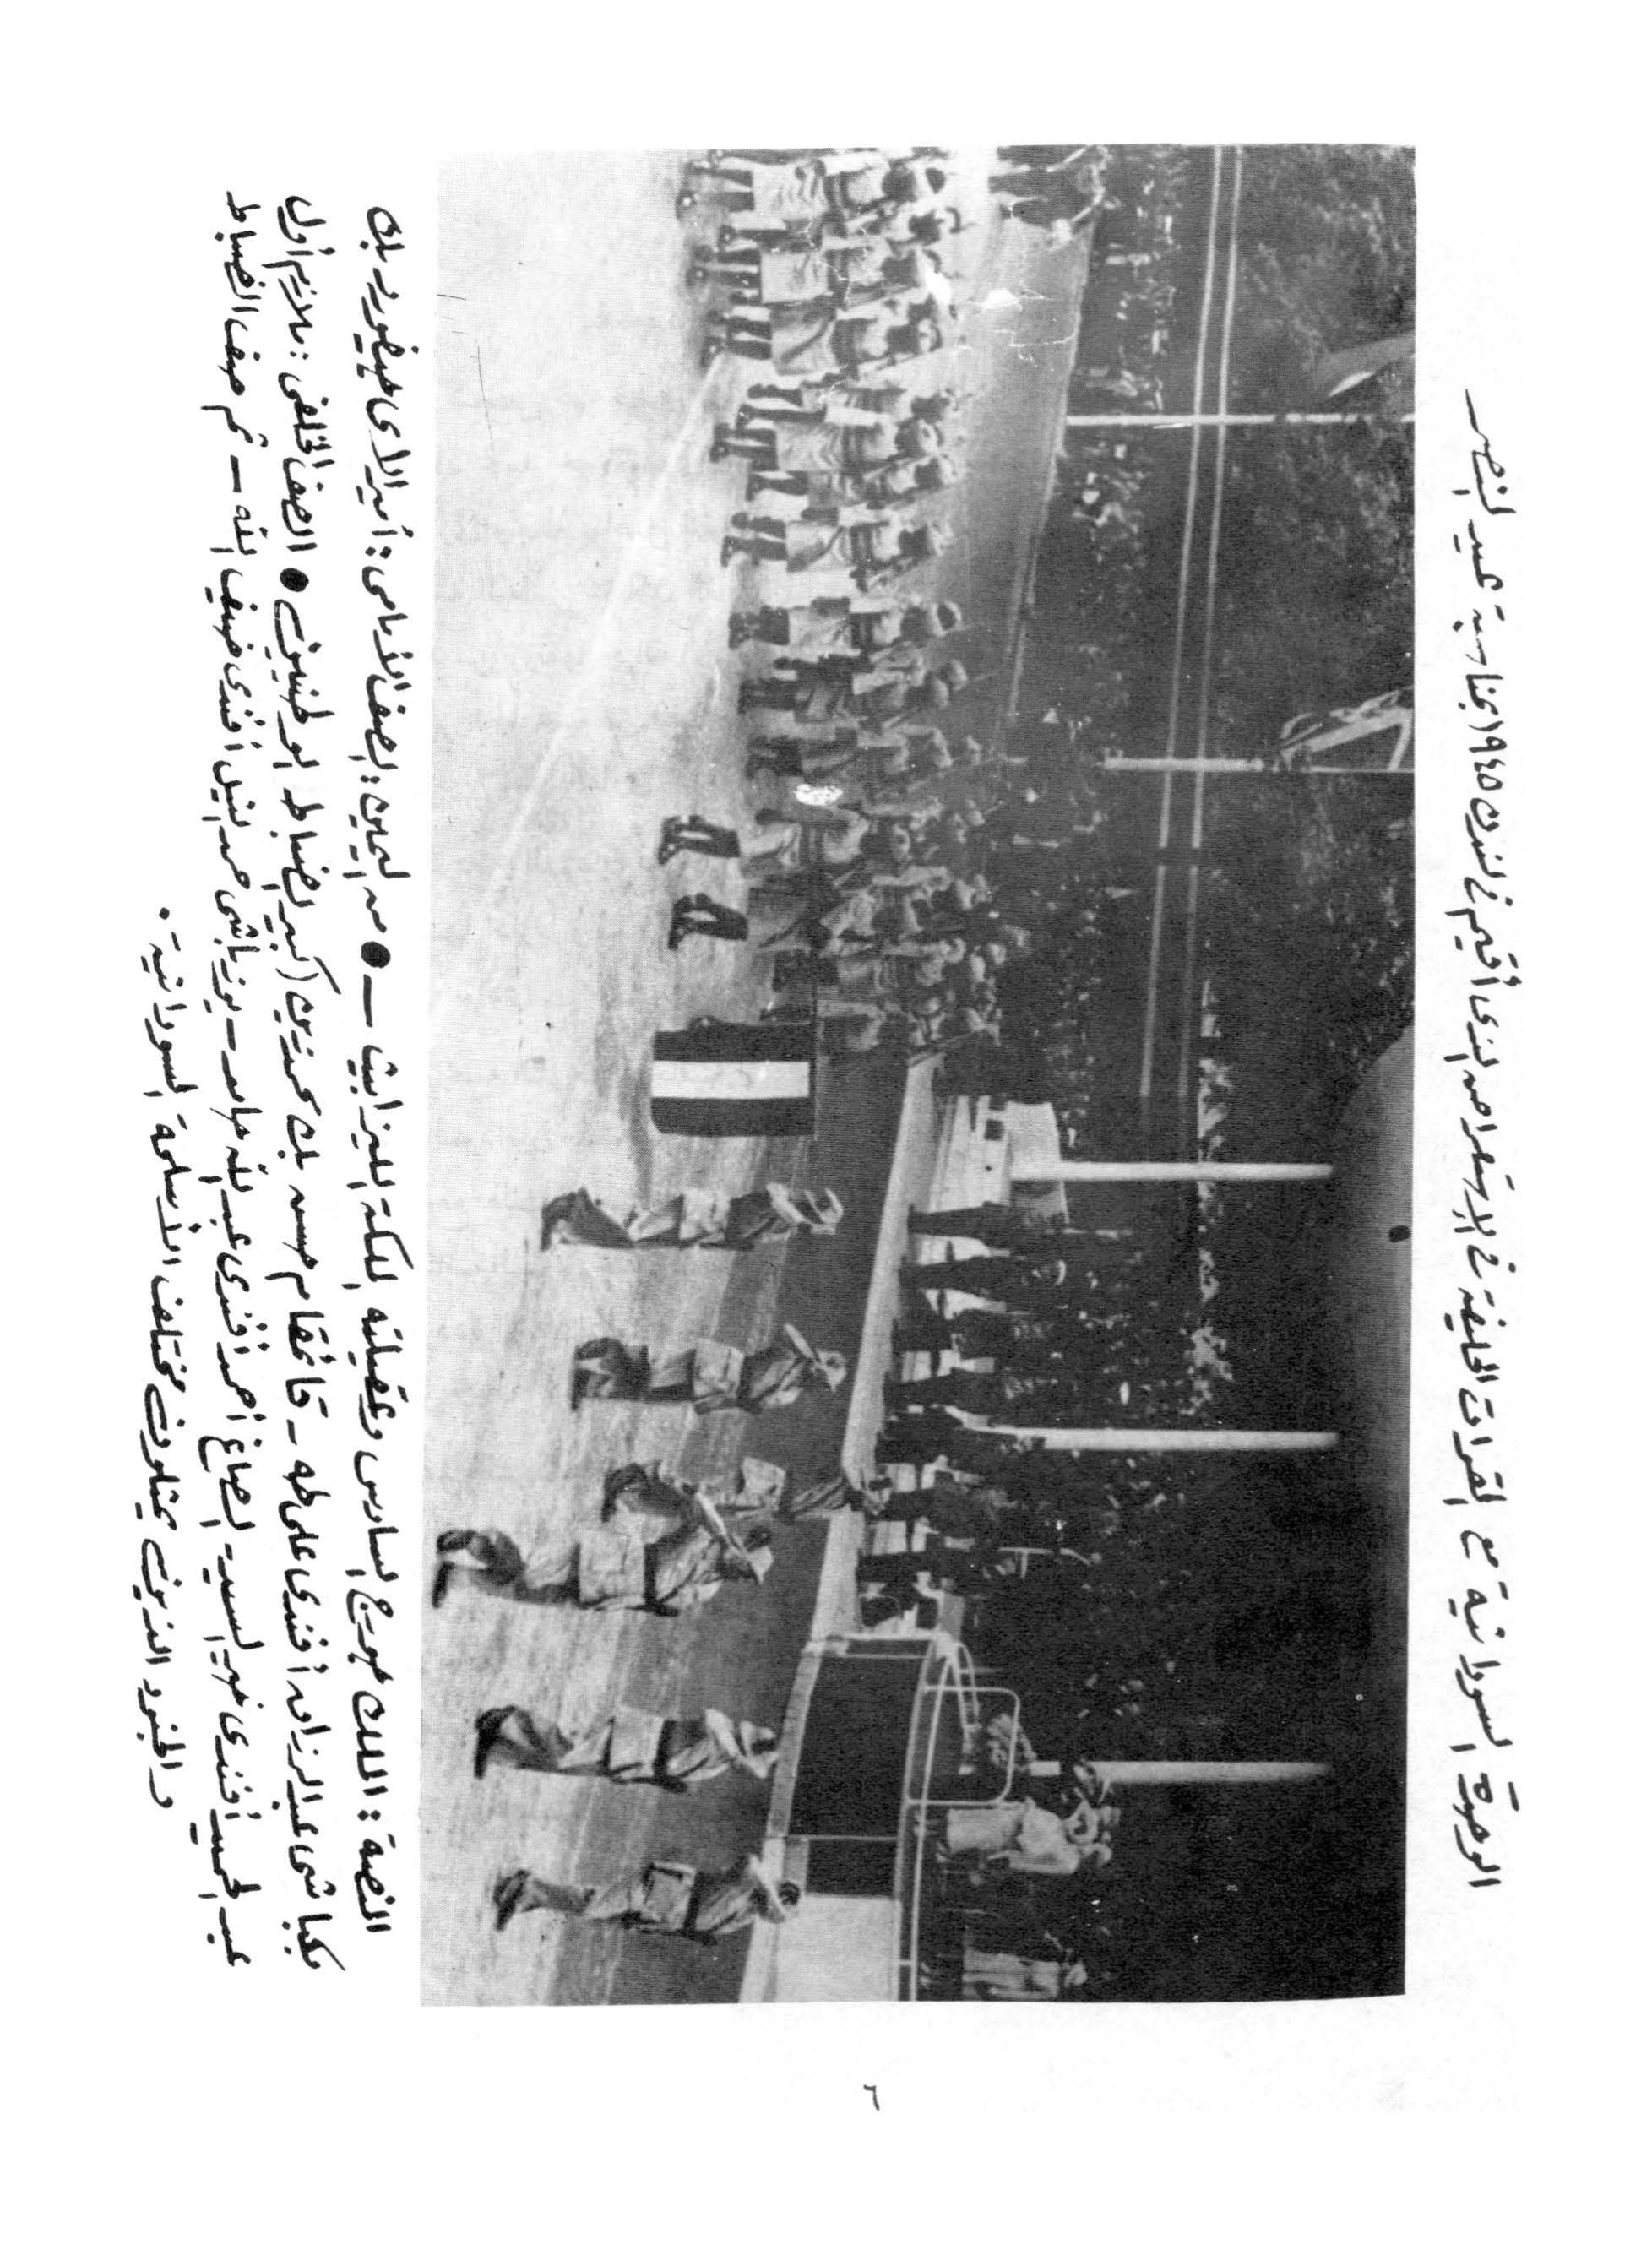 الوحدة السودانية مع القوات الحليفة فى الاستعراض الذى أقيم فى لندن ١٩٤٥ بمناسبة عيد النصر
المنصة : الملك جورج السادس وعقيلته الملكة اليزابيث — ● من اليمين : الصف الأمامى : أميرالاى طيفور بك
بكباشى عبد الرازق أفندى على طه - قائمقام حسن بك محمد زين أكبر الضباط الوطنيين ● الصف الخلفى : ملازم أول
عبد الحميد أفندى خير السيد - الصاغ أحمد أفندى عبد الله حامد - يوزباشى محمد أفندى ضيف الله - ثم صف الضباط
والجنود الذين يمثلون مختلف الأسلحة السودانية .
٦